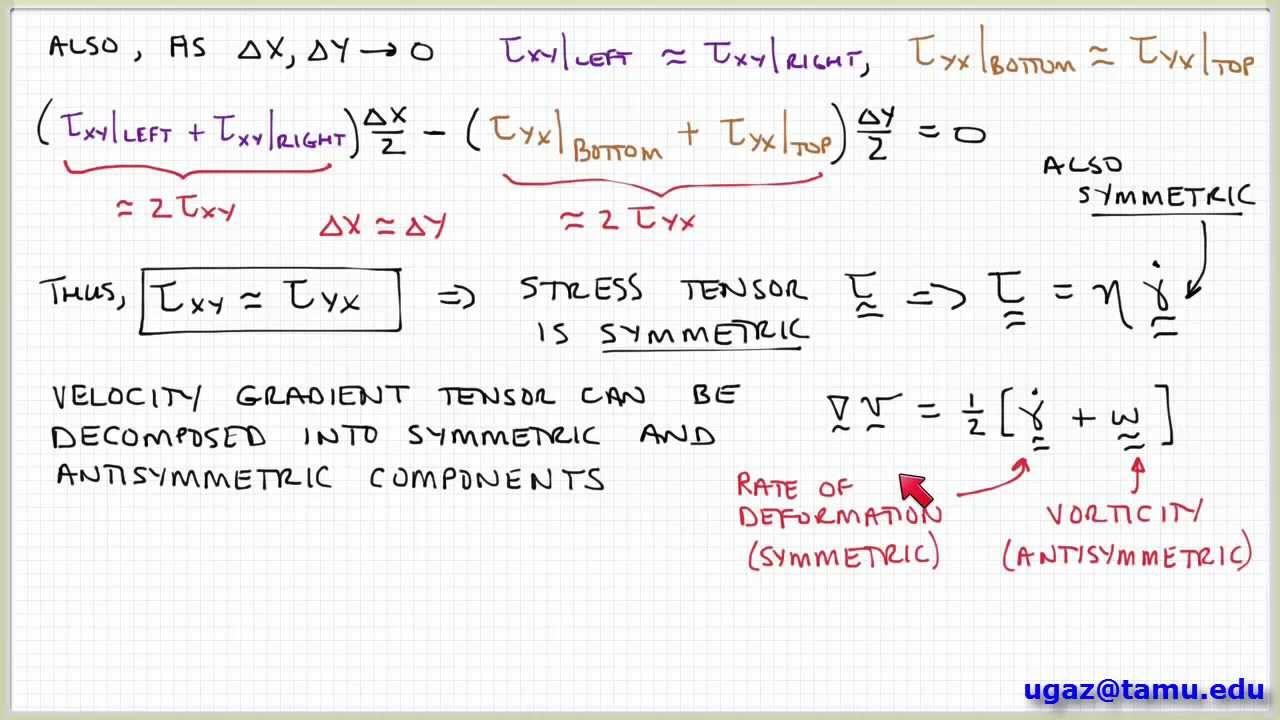 ALSO, AS ΔX, ΔY → 0 τxy|LEFT ≈ τxy|RIGHT, τyx|BOTTOM ≈ τyx|TOP
(τxy|LEFT + τxy|RIGHT) ΔX/2 − (τyx|BOTTOM + τyx|TOP) ΔY/2 = 0
≈ 2 τxy ΔX ≃ ΔY ≈ 2 τyx
ALSO
SYMMETRIC
THUS, τxy ≃ τyx ⇒ STRESS TENSOR τ ⇒ τ = η γ̇
IS SYMMETRIC
VELOCITY GRADIENT TENSOR CAN BE
DECOMPOSED INTO SYMMETRIC AND
ANTISYMMETRIC COMPONENTS
∇v = 1/2 [γ̇ + ω]
RATE OF
DEFORMATION
(SYMMETRIC)
VORTICITY
(ANTISYMMETRIC)
ugaz@tamu.edu